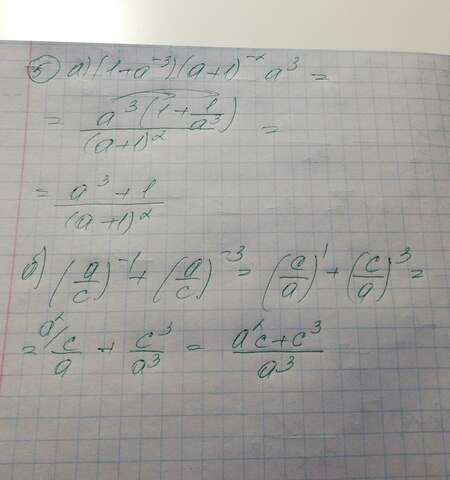 ⑤ а) (1+a⁻³)(a+1)⁻² a³ =
= a³(1 + 1/a³) / (a+1)² =
= (a³ + 1) / (a+1)²
б) (a/c)⁻¹ + (a/c)⁻³ = (c/a)¹ + (c/a)³ =
= a²/ c/a + c³/a³ = (a²c + c³) / a³